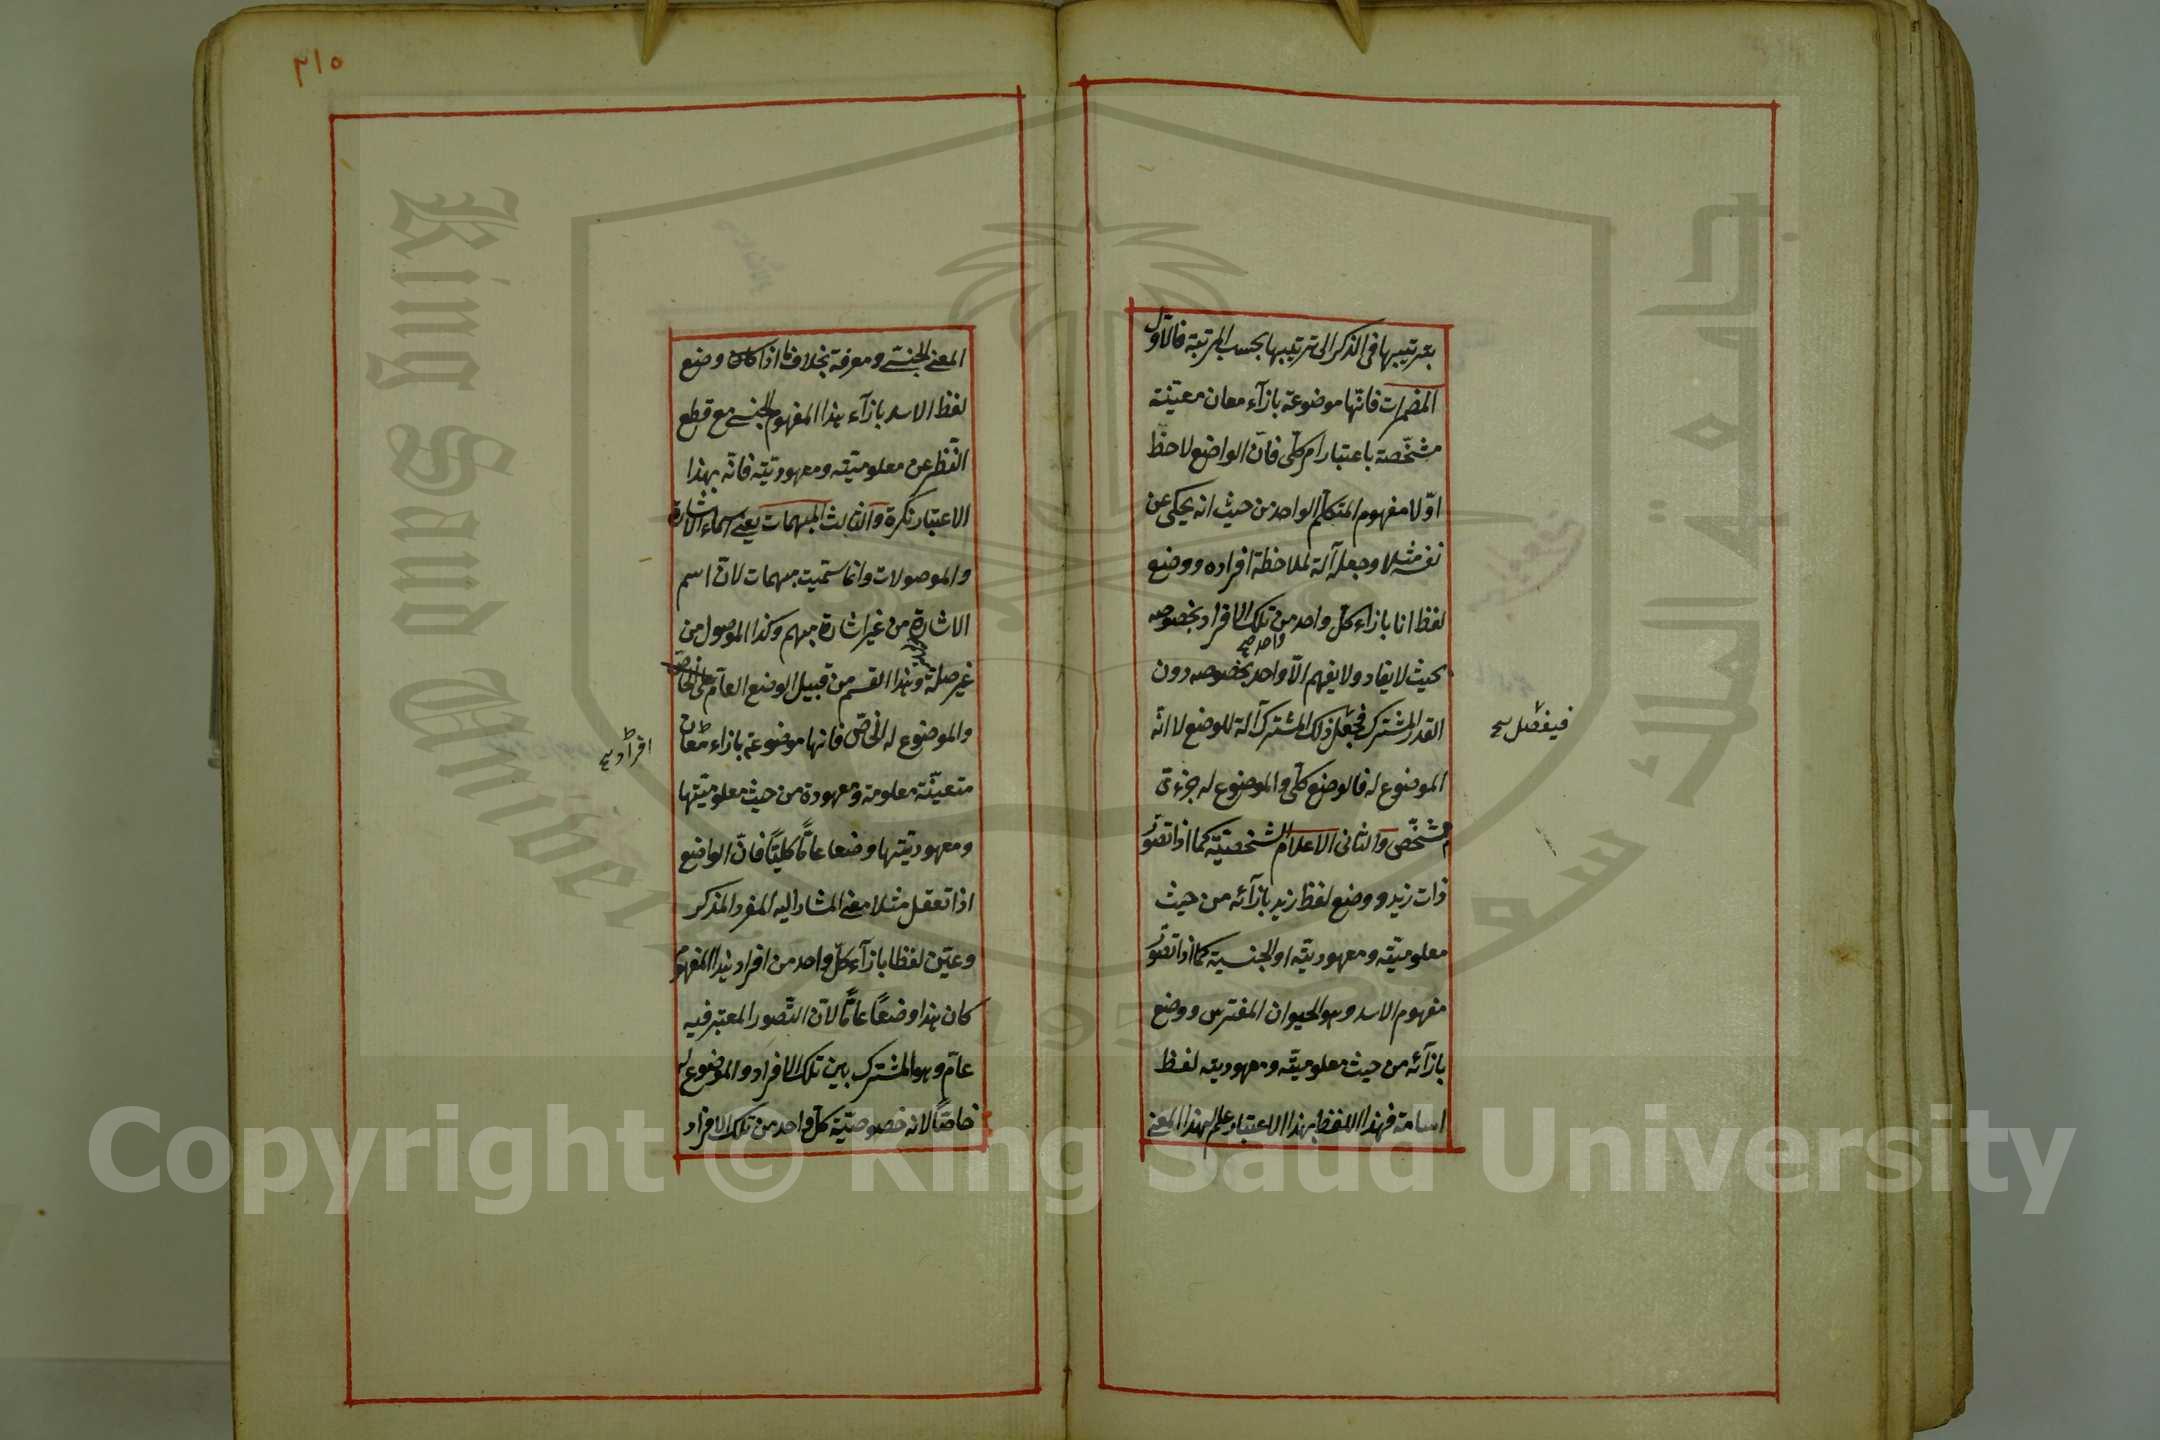 بترتيبها فى الذكر الى ترتيبها بحسب المرتبة فالاول
المضمرات فانها موضوعة بازآء معان معيّنة
مشخّصة باعتبار امر كلّى فانّ الواضع لاحظ
اوّلا مفهوم المتكلّم الواحد من حيث انه يحكى عن
نفسه مثلا وجعله آلة لملاحظة افراده ووضع
لفظ انا بازاء كلّ واحد من تلك الافراد بخصوصه
واحد صح
بحيث لا يفاد ولا يفهم الّا واحد بخصوصه دون
القدر المشترك فجعل ذلك المشترك آلة للوضع لا انّه
فيفصل صح
الموضوع له فالوضع كلّى والموضوع له جزءى
مشخّص والثانى الاعلام الشخصيّة كما اذا تصوّر
ذات زيد ووضع لفظ زيد بازآئه من حيث
معلوميّته ومعهوديّته او الجنسية كما اذا تصوّر
مفهوم الاسد وهو الحيوان المفترس ووضع
بازآئه من حيث معلوميّته ومعهوديته لفظ
اسامة فهذا اللفظ بهذا الاعتبار علم لهذا المعنى
٣١٥
المعنى الجنسى ومعرفة بخلاف ما اذا كان وضع
لفظ الاسد بازآء هذا المفهوم الجنسى مع قطع
النّظر عن معلوميّته ومعهوديّته فانّه بهذا
الاعتبار نكرة والثالث المبهمات يعنى اسماء الاشارة
والموصولات وانما سمّيت مبهمات لانّ اسم
الاشارة من غير اشارة مبهم وكذا الموصول من
غير صلة وهذا القسم من قبيل الوضع العام على الخاصّ
والموضوع له الخاصّ فانها موضوعة بازاء معان
افراد صح
متعيّنة معلومة ومعهودة من حيث معلوميّتها
ومعهوديّتها وضعا عامّا كليّا فانّ الواضع
اذا تعقل مثلا معنى المشار اليه المفرد المذكر
وعيّن لفظا بازآء كلّ واحد من افراد هذا المفهوم
كان هذا وضعاً عامّاً لانّ التّصور المعتبر فيه
عامّ وهو المشترك بين تلك الافراد والموضوع له
خاصّاً لانه خصوصيّة كلّ واحد من تلك الافراد
King Saud University
جامعة الملك سعود
1957
Copyright © King Saud University